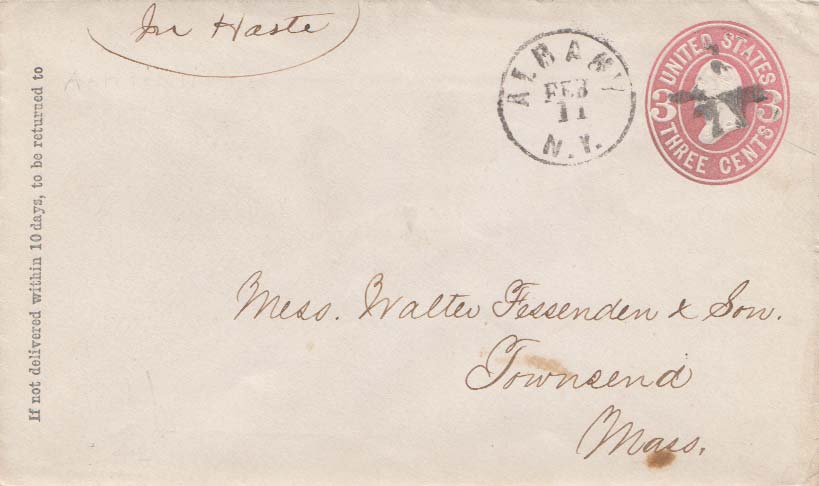 In Haste
ALBANY
FEB
11
N.Y.
UNITED STATES
3 3
THREE CENTS
If not delivered within 10 days, to be returned to
Mess. Walter Fessenden & Son.
Townsend
Mass.